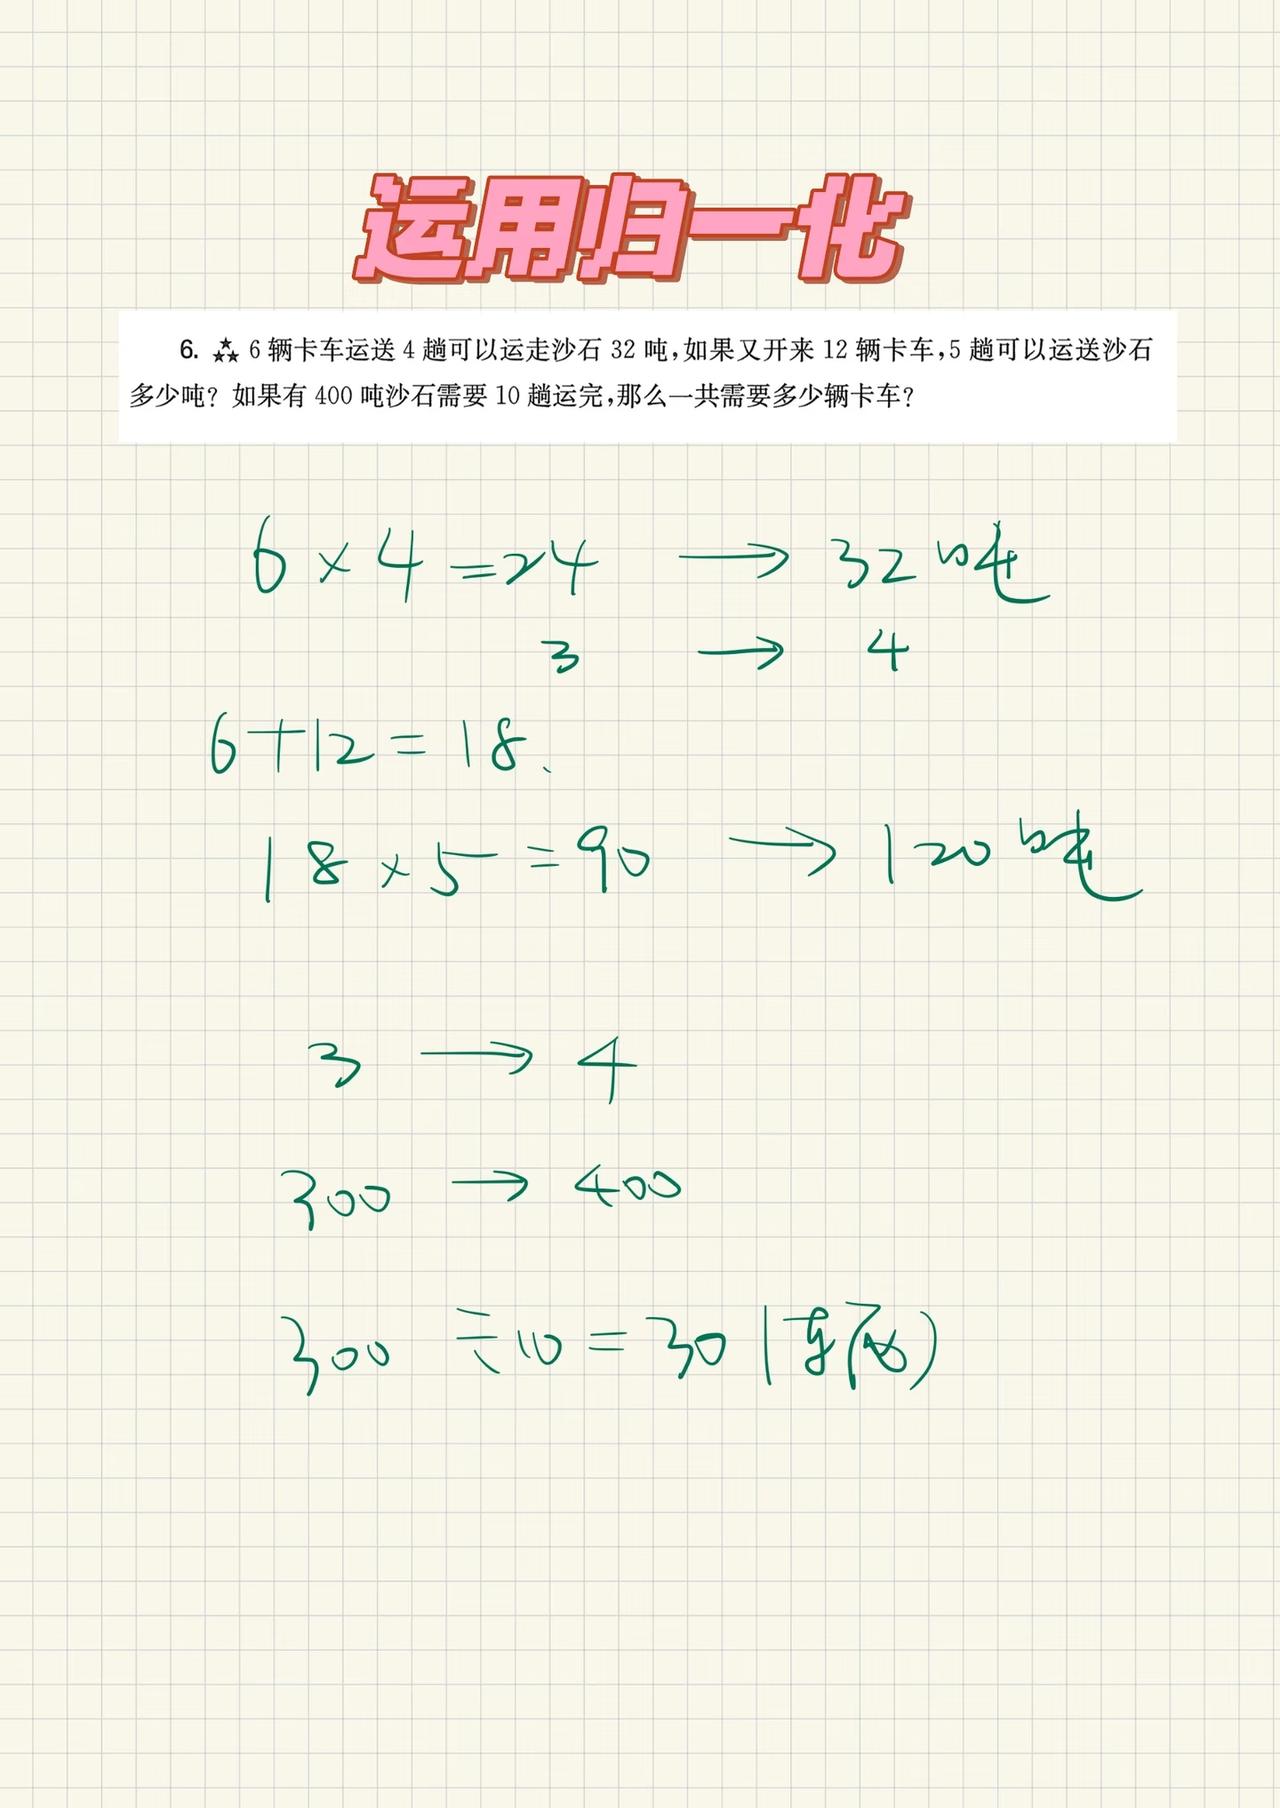 运用归一化
6. 6辆卡车运送4趟可以运走沙石32吨,如果又开来12辆卡车,5趟可以运送沙石
多少吨?如果有400吨沙石需要10趟运完,那么一共需要多少辆卡车?
6×4=24 → 32吨
3 → 4
6+12=18.
18×5=90 → 120吨
3 → 4
300 → 400
300÷10=30(辆)